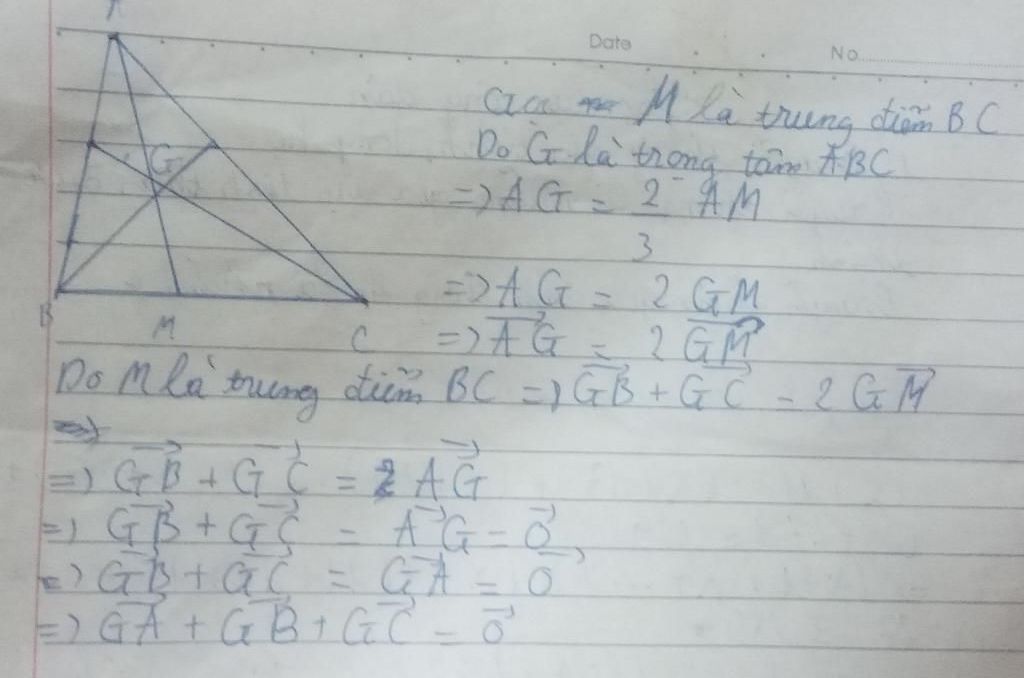 Date No
A
Gọi M là trung điểm BC
Do G là trọng tâm ABC
G
=> AG = 2/3 AM
=> AG = 2 GM
B M C => \overrightarrow{AG} = 2 \overrightarrow{GM}
Do M là trung điểm BC => \overrightarrow{GB} + \overrightarrow{GC} = 2 \overrightarrow{GM}
=>
=> \overrightarrow{GB} + \overrightarrow{GC} = \overrightarrow{AG}
=> \overrightarrow{GB} + \overrightarrow{GC} = \overrightarrow{AG} = \overrightarrow{0}
=> \overrightarrow{GB} + \overrightarrow{GC} = \overrightarrow{GA} = \overrightarrow{0}
=> \overrightarrow{GA} + \overrightarrow{GB} + \overrightarrow{GC} = \overrightarrow{0}